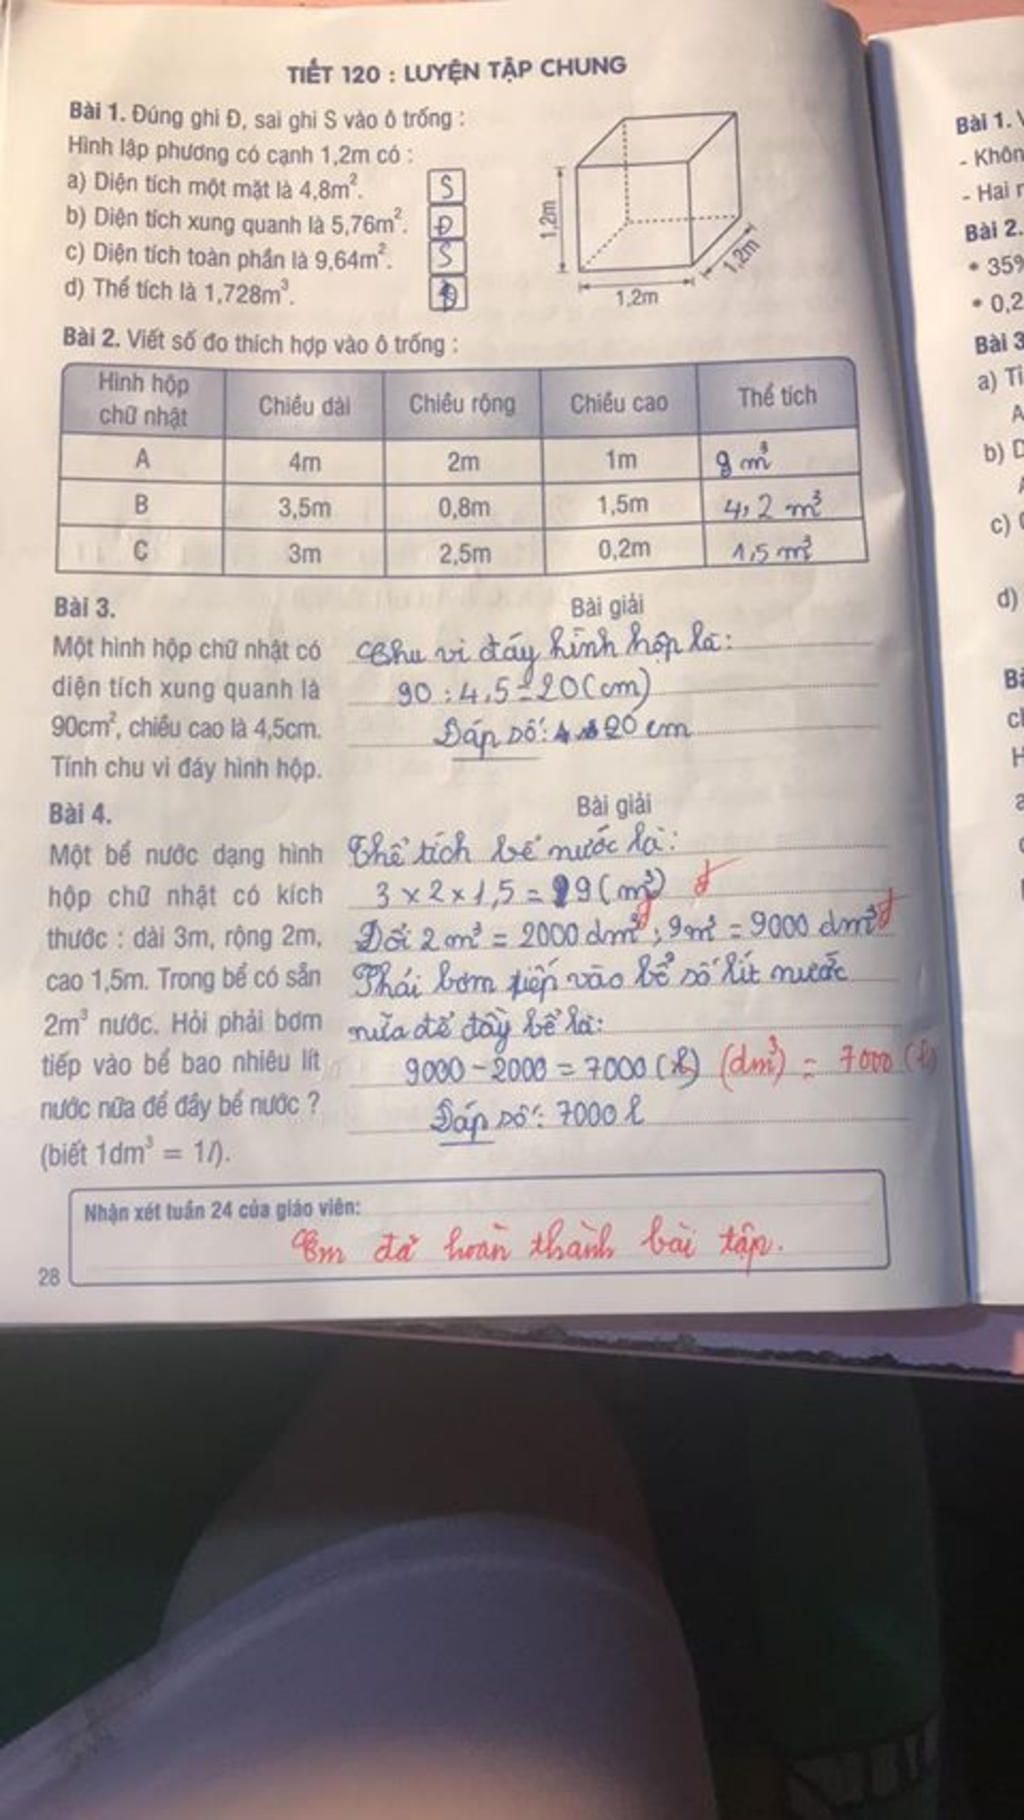 TIẾT 120 : LUYỆN TẬP CHUNG
Bài 1. Đúng ghi Đ, sai ghi S vào ô trống :
Hình lập phương có cạnh 1,2m có :
a) Diện tích một mặt là 4,8m². S
b) Diện tích xung quanh là 5,76m². Đ
c) Diện tích toàn phần là 9,64m². S
d) Thể tích là 1,728m³. Đ
1,2m
1,2m
1,2m
Bài 2. Viết số đo thích hợp vào ô trống :
Hình hộp chữ nhật Chiều dài Chiều rộng Chiều cao Thể tích
A 4m 2m 1m 8 m³
B 3,5m 0,8m 1,5m 4,2 m³
C 3m 2,5m 0,2m 1,5 m³
Bài 3.
Một hình hộp chữ nhật có
diện tích xung quanh là
90cm², chiều cao là 4,5cm.
Tính chu vi đáy hình hộp.
Bài giải
Chu vi đáy hình hộp là:
90 : 4,5 = 20 (cm)
Đáp số: 20 cm
Bài 4.
Một bể nước dạng hình
hộp chữ nhật có kích
thước : dài 3m, rộng 2m,
cao 1,5m. Trong bể có sẵn
2m³ nước. Hỏi phải bơm
tiếp vào bể bao nhiêu lít
nước nữa để đầy bể nước ?
(biết 1dm³ = 1l).
Bài giải
Thể tích bể nước là:
3 x 2 x 1,5 = 9 (m³) đ
Đổi 2 m³ = 2000 dm³ ; 9m³ = 9000 dm³ đ
Phải bơm tiếp vào bể số lít nước
nữa để đầy bể là:
9000 - 2000 = 7000 (l) (dm³) = 7000 (l)
Đáp số: 7000 l
Nhận xét tuần 24 của giáo viên:
Em đã hoàn thành bài tập.
28
Bài 1.
- Khôn
- Hai
Bài 2.
• 35%
• 0,2
Bài 3
a)
b)
c)
d)